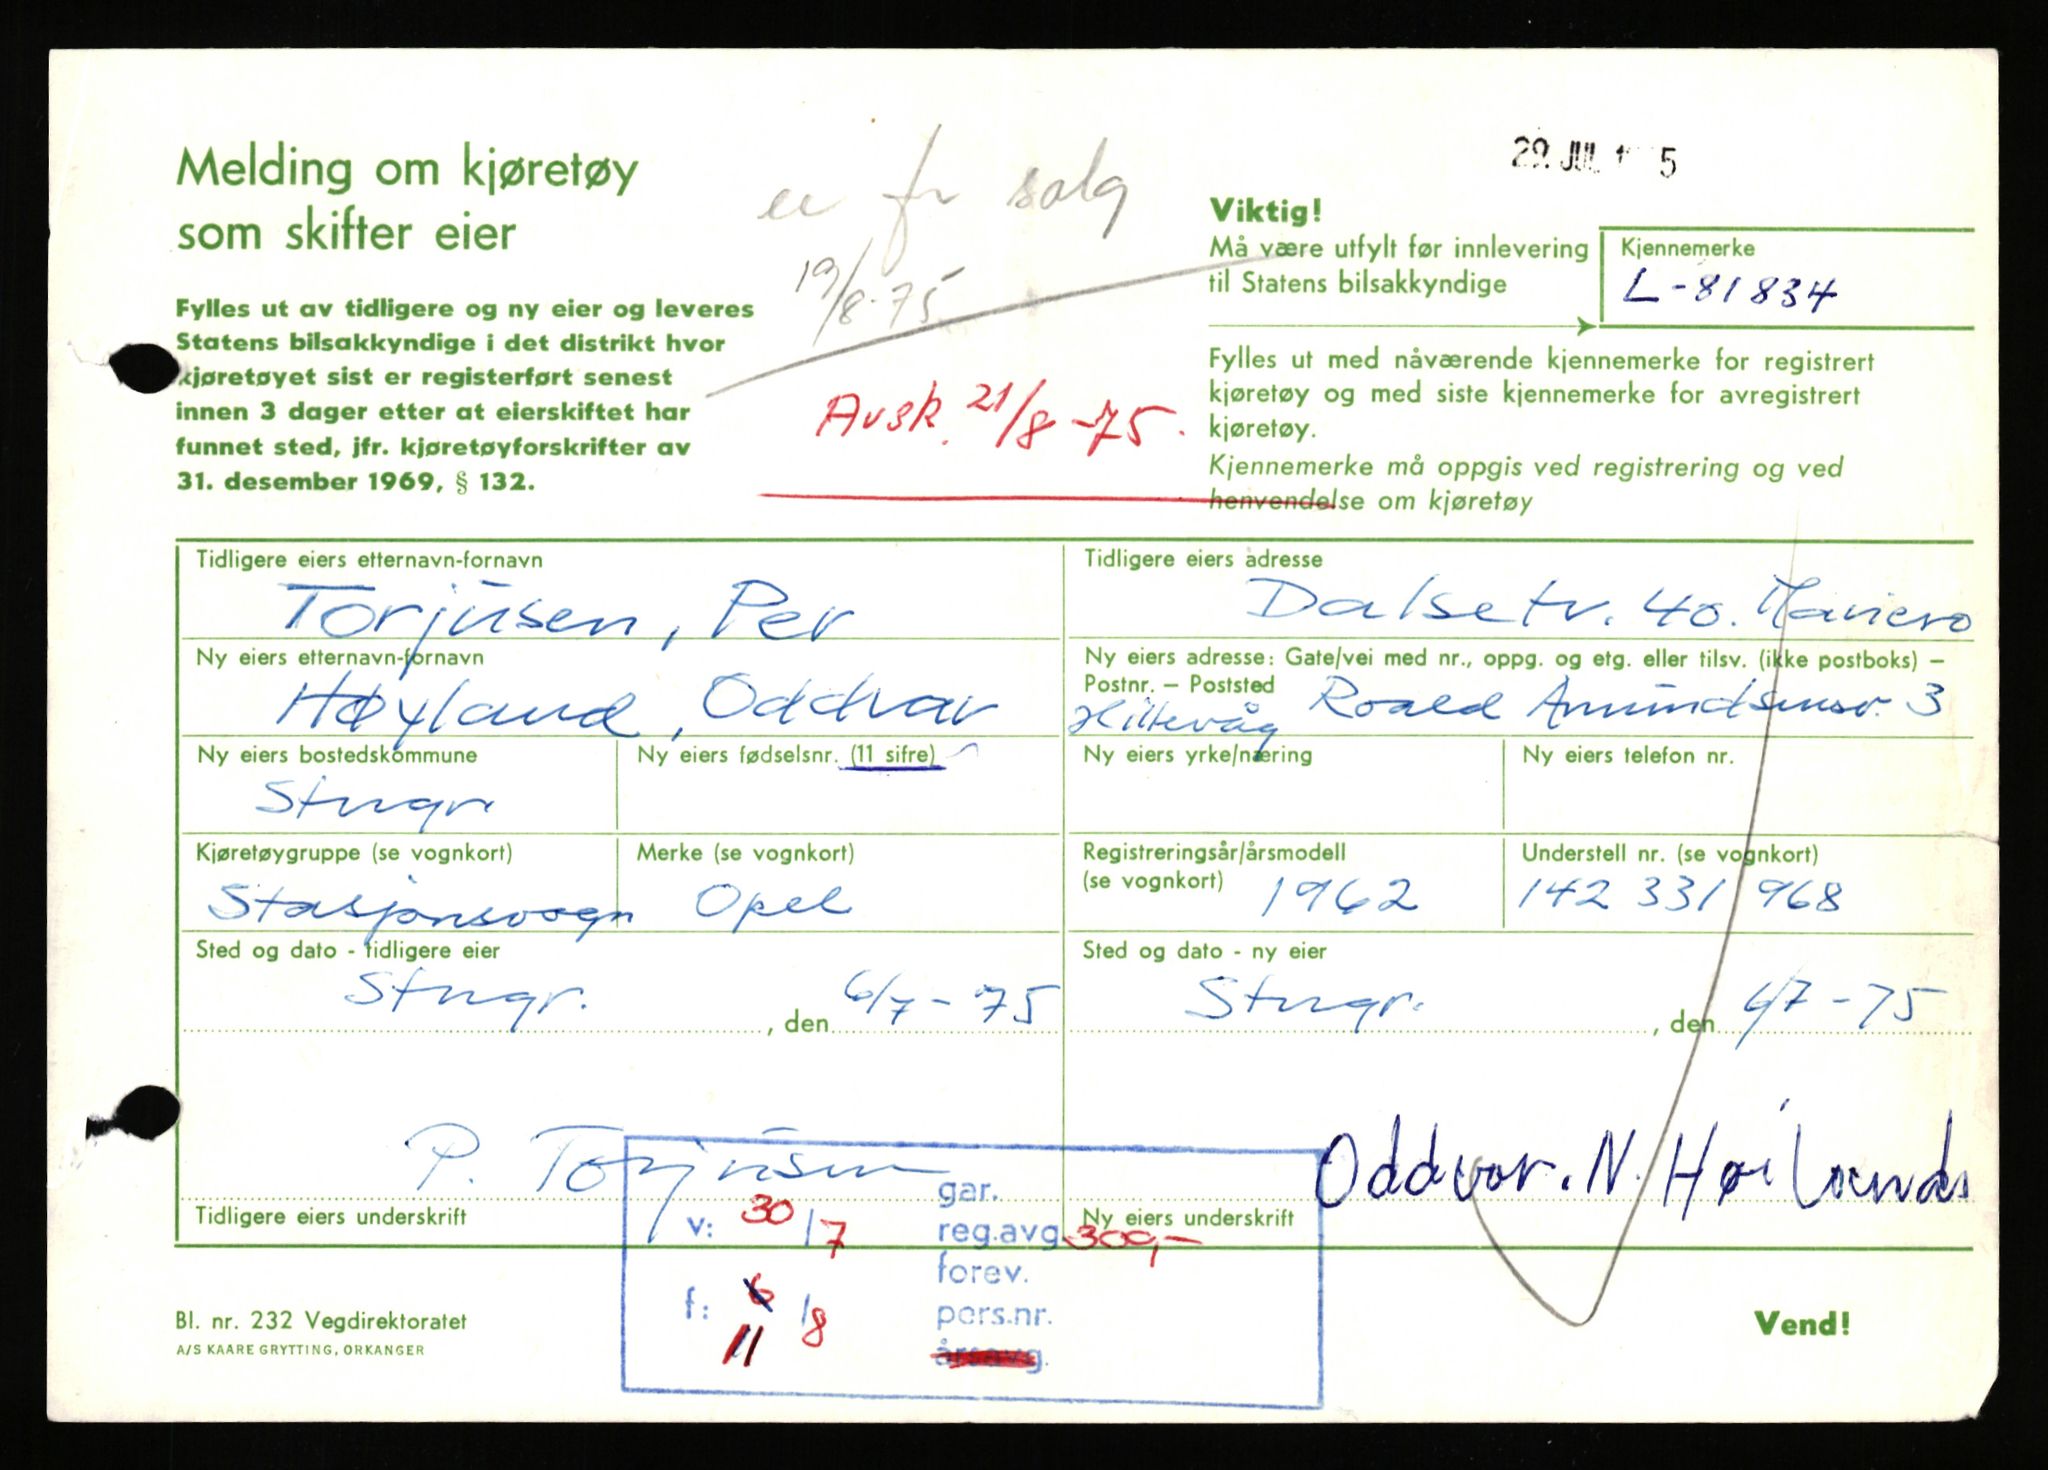 29. JUL 1975
Melding om kjøretøy
som skifter eier
er for salg
19/8-75
Avsk. 21/8-75.
Fylles ut av tidligere og ny eier og leveres
Statens bilsakkyndige i det distrikt hvor
kjøretøyet sist er registerført senest
innen 3 dager etter at eierskiftet har
funnet sted, jfr. kjøretøyforskrifter av
31. desember 1969, § 132.
Viktig!
Må være utfylt før innlevering
til Statens bilsakkyndige
Kjennemerke
L-81834
Fylles ut med nåværende kjennemerke for registrert
kjøretøy og med siste kjennemerke for avregistrert
kjøretøy.
Kjennemerke må oppgis ved registrering og ved
henvendelse om kjøretøy
Tidligere eiers etternavn-fornavn
Torjusen, Per
Tidligere eiers adresse
Dalsetv. 40.
Ny eiers etternavn-fornavn
Høyland, Oddvar
Ny eiers adresse: Gate/vei med nr., oppg. og etg. eller tilsv. (ikke postboks) –
Postnr. – Poststed
Hillevåg Roald Amundsensv. 3
Ny eiers bostedskommune
Stvgr.
Ny eiers fødselsnr. (11 sifre)
Ny eiers yrke/næring
Ny eiers telefon nr.
Kjøretøygruppe (se vognkort)
Stasjonsvogn
Merke (se vognkort)
Opel
Registreringsår/årsmodell
(se vognkort)
1962
Understell nr. (se vognkort)
142 331 968
Sted og dato - tidligere eier
Stvgr. , den 6/7-75
Sted og dato - ny eier
Stvgr. , den 6/7-75
P. Torjusen
Tidligere eiers underskrift
Oddvar. N. Høilands
Ny eiers underskrift
v: 30/7
f: 6/8
11
gar.
reg.avg. 300,-
forev.
pers.nr.
årsavg.
Bl. nr. 232 Vegdirektoratet
A/S KAARE GRYTTING, ORKANGER
Vend!